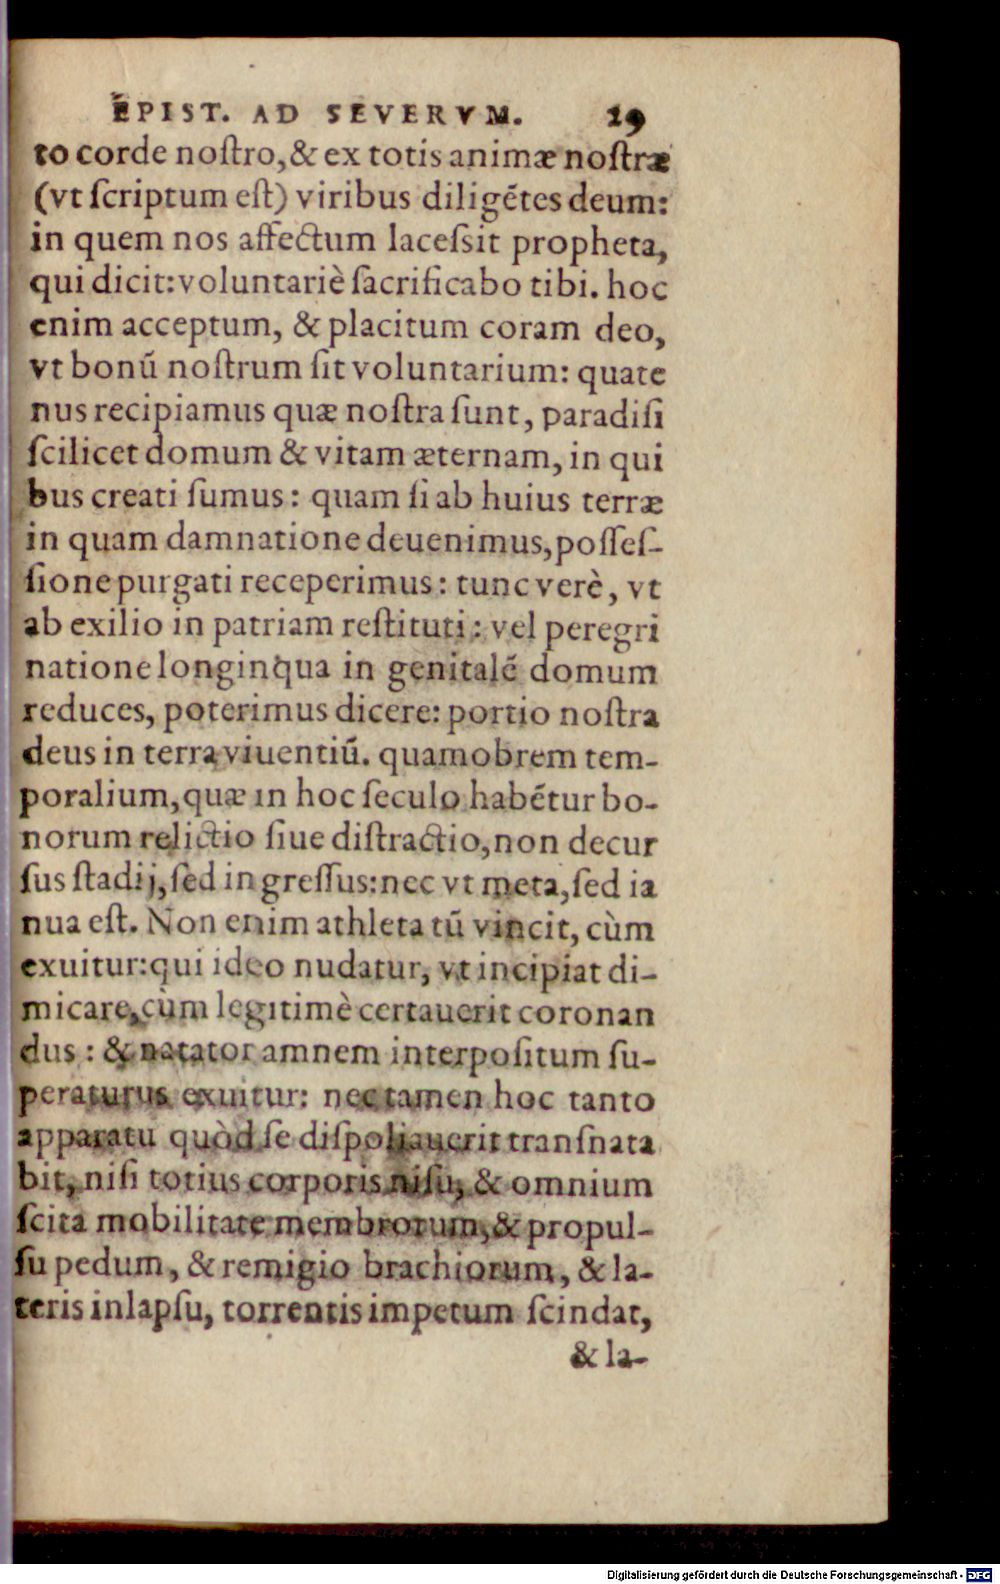 EPIST. AD SEVERVM. 29
to corde noſtro, & ex totis animæ noſtræ
(vt ſcriptum eſt) viribus diligẽtes deum:
in quem nos affectum laceſsit propheta,
qui dicit: voluntariè ſacrificabo tibi. hoc
enim acceptum, & placitum coram deo,
vt bonũ noſtrum ſit voluntarium: quate
nus recipiamus quæ noſtra ſunt, paradiſi
ſcilicet domum & vitam æternam, in qui
bus creati ſumus: quam ſi ab huius terræ
in quam damnatione deuenimus, poſſeſ-
ſione purgati receperimus: tunc verè, vt
ab exilio in patriam reſtituti: vel peregri
natione longinqua in genitalẽ domum
reduces, poterimus dicere: portio noſtra
deus in terra viuentiũ. quamobrem tem-
poralium, quæ in hoc ſeculo habẽtur bo-
norum relictio ſiue diſtractio, non decur
ſus ſtadij, ſed ingreſſus: nec vt meta, ſed ia
nua eſt. Non enim athleta tũ vincit, cùm
exuitur: qui ideo nudatur, vt incipiat di-
micare, cùm legitimè certauerit coronan
dus: & natator amnem interpoſitum ſu-
peraturus exuitur: nec tamen hoc tanto
apparatu quòd ſe diſpoliauerit tranſnata
bit, niſi totius corporis niſu, & omnium
ſcita mobilitate membrorum, & propul-
ſu pedum, & remigio brachiorum, & la-
teris inlapſu, torrentis impetum ſcindat,
& la-
Digitalisierung gefördert durch die Deutsche Forschungsgemeinschaft - DFG